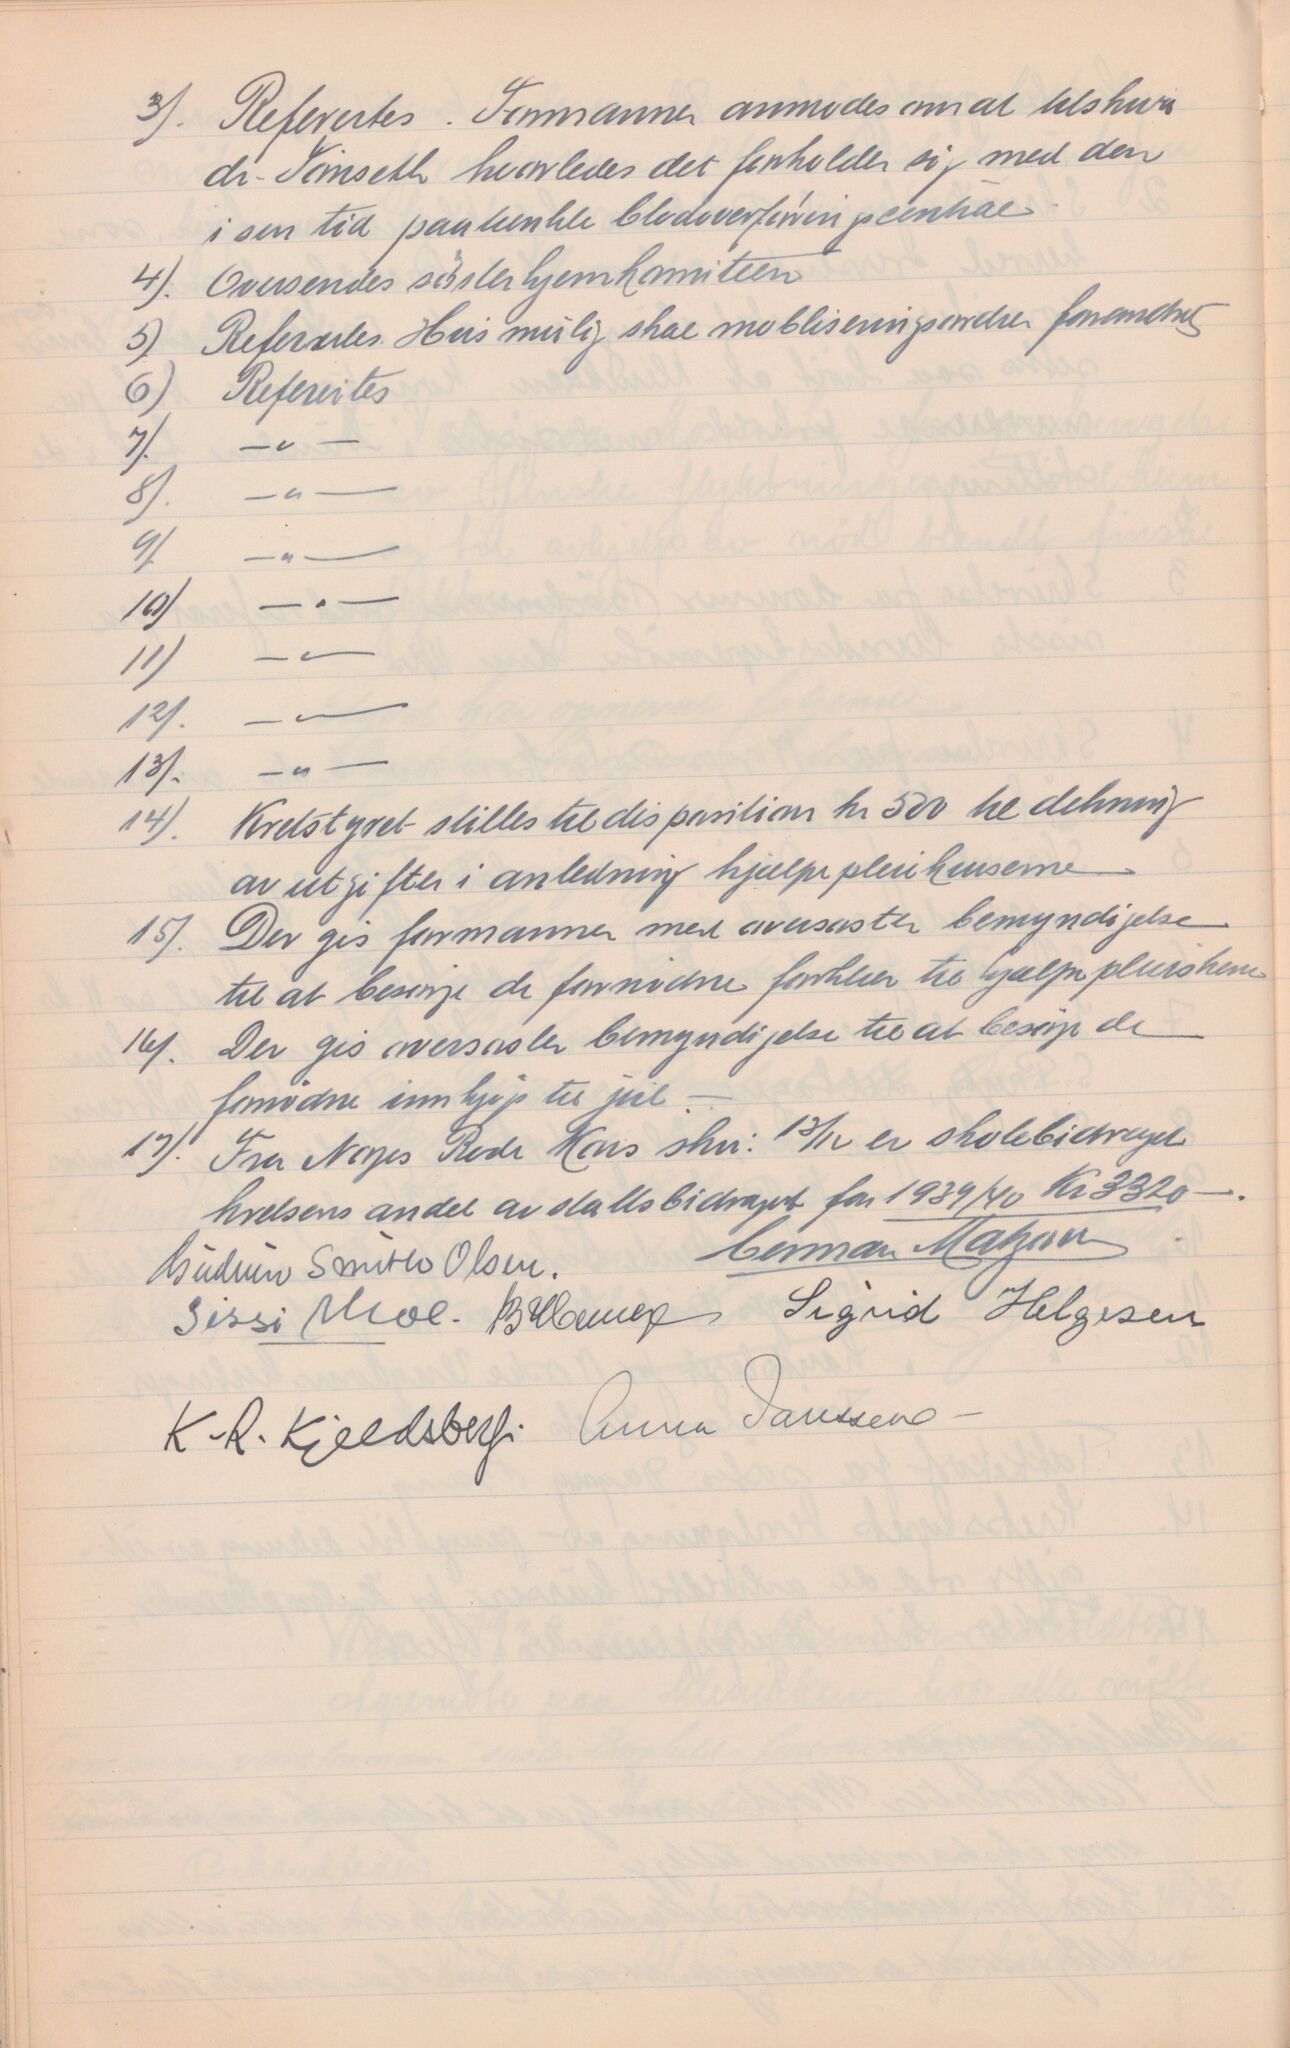 3). Refereres. Formannen anmodes om at tilskrive
dr. Tønseth hvorledes det forholder sig med den
i sen tid paatenkte blodoverføringscentrale
4). Oversendes søsterhjemkomiteen
5) Refereres. Hvis mulig skal mobliseringsordren forandres
6) Refereres
7). — " —
8). — " —
9) — " —
10) — " —
11) — " —
12). — " —
13). — " —
14). Kretstyret stilles til disposition kr 500 til dekning
av utgifter i anledning hjælpepleiekursene
15). Der gis formannen med oversøster bemyndigelse
til at besørge de fornødne forklær til hjælpepleierskene
16). Der gis oversøster bemyndigelse til at besørge de
fornødne innkjøp til jul —
17). Fra Norges Røde Kors skr: 13/12 er skolebidraget
kretsens andel av statsbidraget for 1939/40 Kr 3320 —.
Gudrun Smith Olsen. Herman
Sissi Moe. Sigrid Helgesen
K. R. Kjeldsberg. Anna Janssen —